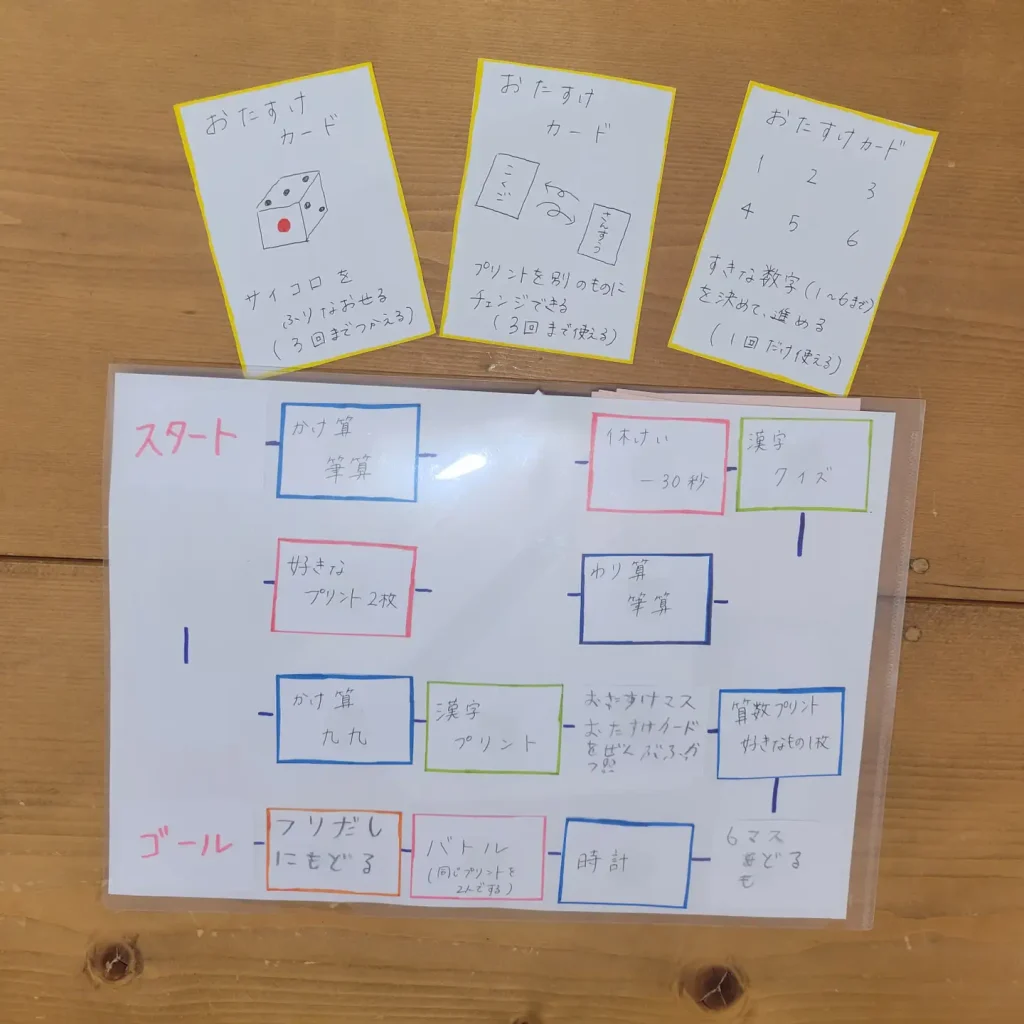 おたすけ
カード
サイコロを
ふりなおせる
(3回までつかえる)
おたすけ
カード
こくご
さんすう
プリントを別のものに
チェンジできる
(3回まで使える)
おたすけカード
1 2 3
4 5 6
すきな数字(1~6まで)
を決めて、進める
(1回だけ使える)
スタート
かけ算
筆算
休けい
-30秒
漢字
クイズ
好きな
プリント2枚
わり算
筆算
かけ算
九九
漢字
プリント
おたすけマス
おたすけカード
算数プリント
好きなもの1枚
ゴール
フリだし
にもどる
バトル
(同じプリントを
2人でする)
時計
6マス
どる
も